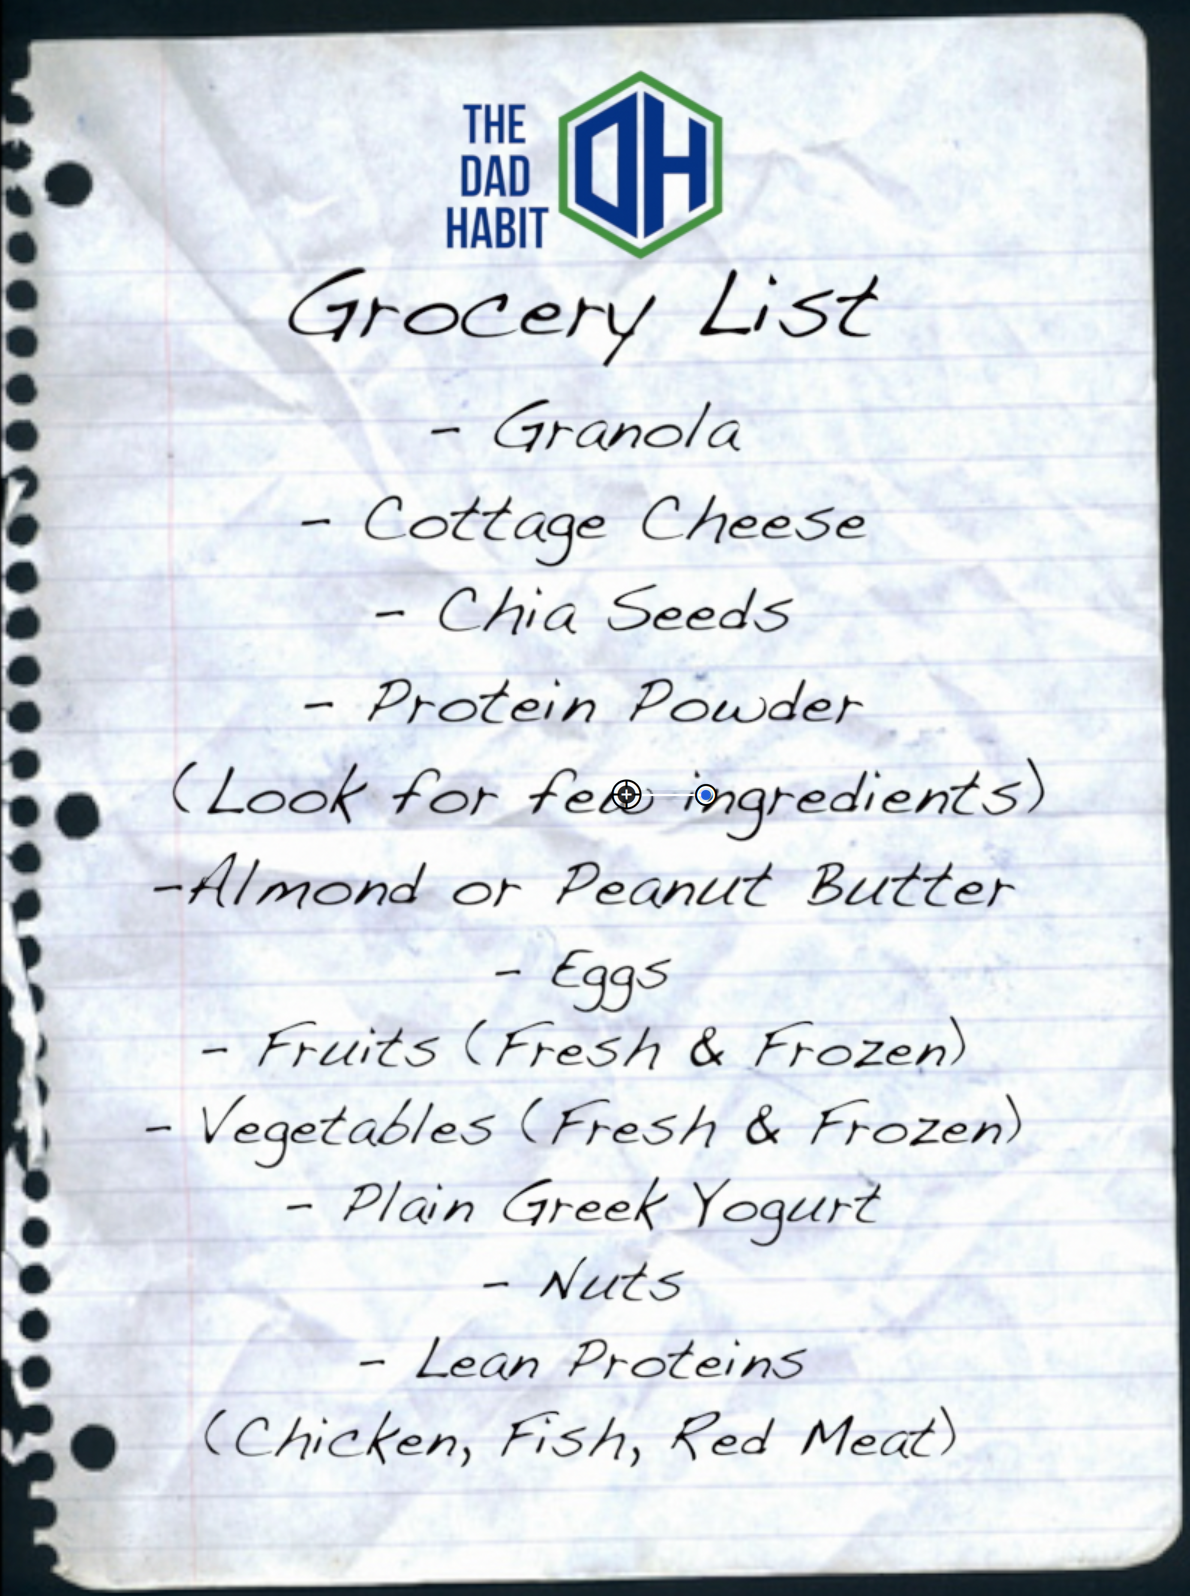 THE
DAD
HABIT
DH
Grocery List
- Granola
- Cottage Cheese
- Chia Seeds
- Protein Powder
(Look for few ingredients)
-Almond or Peanut Butter
- Eggs
- Fruits (Fresh & Frozen)
- Vegetables (Fresh & Frozen)
- Plain Greek Yogurt
- Nuts
- Lean Proteins
(Chicken, Fish, Red Meat)